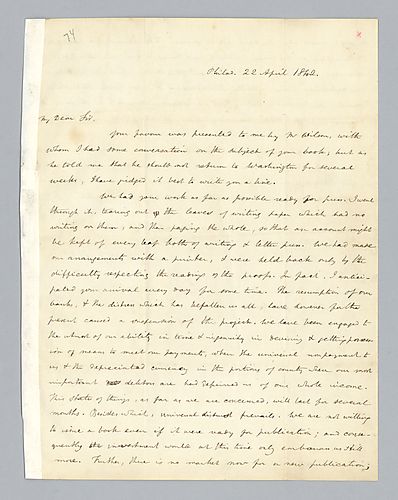 74
Philad. 22 April 1842.
My Dear Sir.
Your favour was presented to me by Mr Wilson, with
whom I had some conversation on the subject of your book; but as
he told me that he should not return to Washington for several
weeks, I have judged it best to write you a line.
We had your work as far as possible ready for press. I went
through it, tearing out the leaves of writing paper which had no
writing on them, and then paging the whole, so that an account might
be kept of every leaf both of writing & letter press. We had made
our arrangements with a printer, & were held back only by the
difficulty respecting the reading of the proofs. In fact, I antici-
pated your arrival every day for some time. The resumption of our
banks, & the distress which has befallen us all, have however for the
present caused a suspension of the project. We have been engaged to
the utmost of our ability in time & ingenuity in devising & getting posses-
sion of means to meet our payments, when the universal non payment to
us & the depreciated currency in the portions of country where our most
important debtors are had deprived us of our whole income.
This state of things, as far as we are concerned, will last for several
months. Besides which, universal distrust prevails. We are not willing
to issue a book even if it were ready for publication; and conse-
quently the investment would at this time only embarrass us still
more. Further, there is no market now for a new publication;